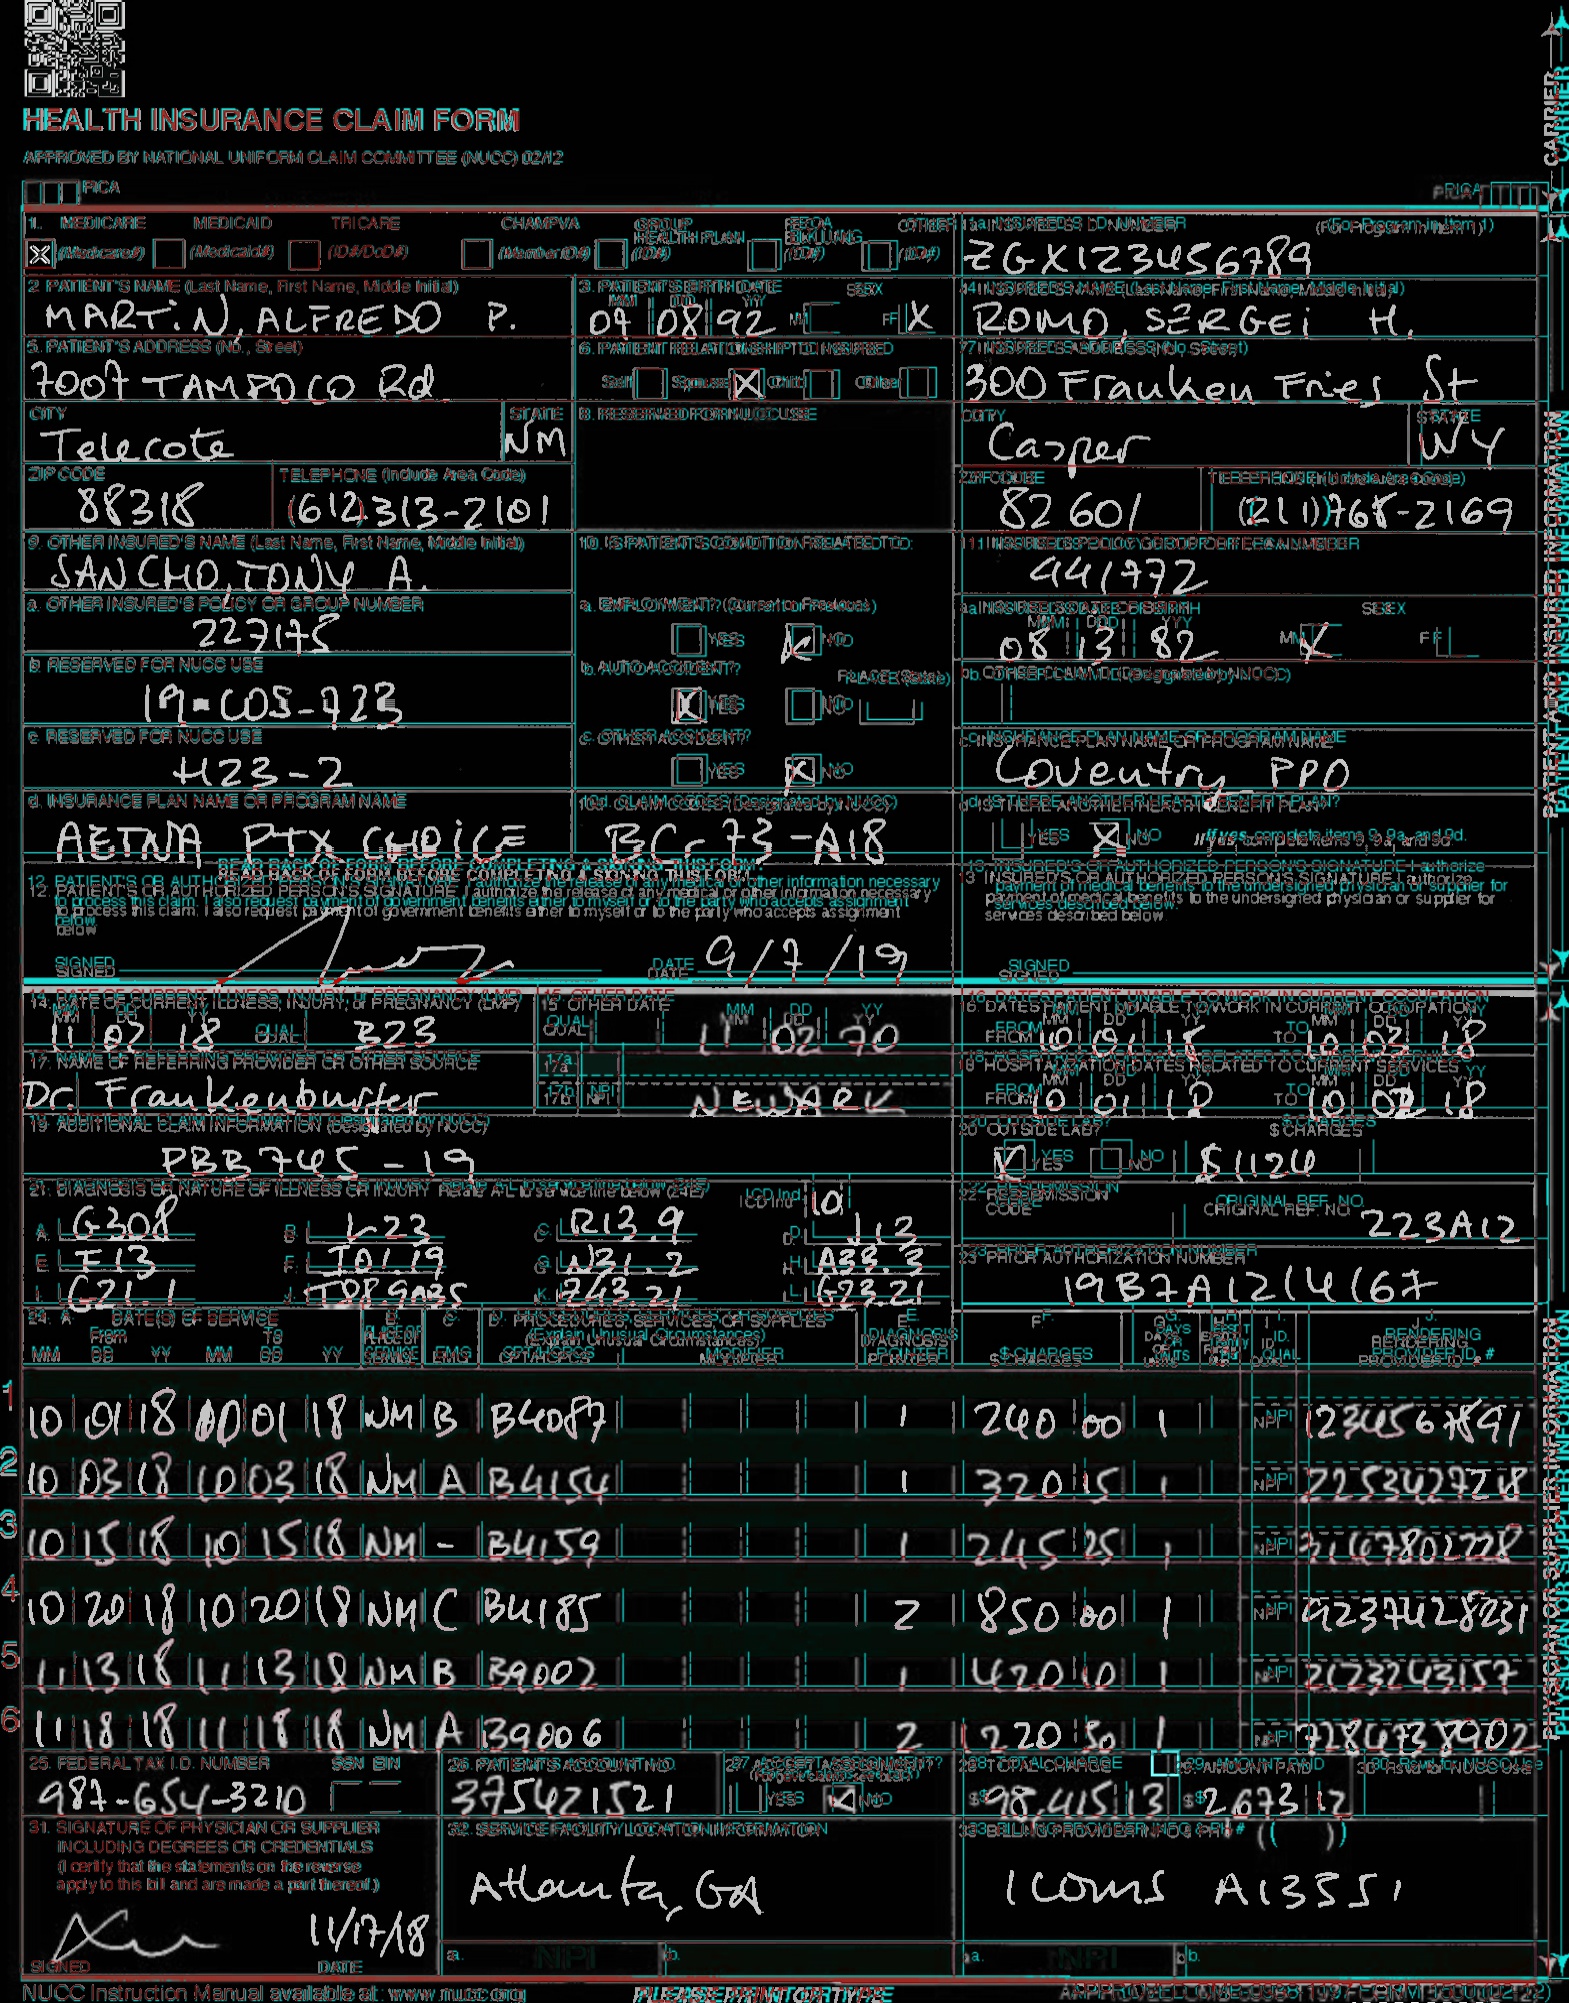 HEALTH INSURANCE CLAIM FORM
APPROVED BY NATIONAL UNIFORM CLAIM COMMITTEE (NUCC) 02/12
PICA PICA
CARRIER
1. MEDICARE MEDICAID TRICARE CHAMPVA GROUP HEALTH PLAN FECA BLK LUNG OTHER
X (Medicare#) (Medicaid#) (ID#/DoD#) (Member ID#) (ID#) (ID#) (ID#)
1a. INSURED'S I.D. NUMBER (For Program in Item 1)
ZGX123456789
2. PATIENT'S NAME (Last Name, First Name, Middle Initial)
MARTIN, ALFREDO P.
3. PATIENT'S BIRTH DATE SEX
MM DD YY
07 08 92 M F X
4. INSURED'S NAME (Last Name, First Name, Middle Initial)
ROMO, SERGEI H.
5. PATIENT'S ADDRESS (No., Street)
7007 TAMPOCO Rd
6. PATIENT RELATIONSHIP TO INSURED
Self Spouse X Child Other
7. INSURED'S ADDRESS (No., Street)
300 Franken Fries St
CITY STATE
Telecote NM
8. RESERVED FOR NUCC USE
CITY STATE
Casper WY
ZIP CODE TELEPHONE (Include Area Code)
88318 (612) 313-2101
ZIP CODE TELEPHONE (Include Area Code)
82601 (211) 768-2169
9. OTHER INSURED'S NAME (Last Name, First Name, Middle Initial)
SANCHO, TONY A.
10. IS PATIENT'S CONDITION RELATED TO:
11. INSURED'S POLICY GROUP OR FECA NUMBER
441772
a. OTHER INSURED'S POLICY OR GROUP NUMBER
227175
a. EMPLOYMENT? (Current or Previous)
YES X NO
a. INSURED'S DATE OF BIRTH SEX
MM DD YY
08 13 82 M X F
b. RESERVED FOR NUCC USE
19-C05-723
b. AUTO ACCIDENT? PLACE (State)
X YES NO
b. OTHER CLAIM ID (Designated by NUCC)
c. RESERVED FOR NUCC USE
H23-2
c. OTHER ACCIDENT?
YES X NO
c. INSURANCE PLAN NAME OR PROGRAM NAME
Coventry PPO
d. INSURANCE PLAN NAME OR PROGRAM NAME
AETNA PTX CHOICE
10d. CLAIM CODES (Designated by NUCC)
BC-73-A18
d. IS THERE ANOTHER HEALTH BENEFIT PLAN?
YES X NO If yes, complete items 9, 9a, and 9d.
PATIENT AND INSURED INFORMATION
READ BACK OF FORM BEFORE COMPLETING & SIGNING THIS FORM.
12. PATIENT'S OR AUTHORIZED PERSON'S SIGNATURE I authorize the release of any medical or other information necessary
to process this claim. I also request payment of government benefits either to myself or to the party who accepts assignment
below.
SIGNED DATE 9/7/19
13. INSURED'S OR AUTHORIZED PERSON'S SIGNATURE I authorize
payment of medical benefits to the undersigned physician or supplier for
services described below.
SIGNED
14. DATE OF CURRENT ILLNESS, INJURY, or PREGNANCY (LMP)
MM DD YY
11 02 18 QUAL. 323
15. OTHER DATE
QUAL. MM DD YY
11 02 70
16. DATES PATIENT UNABLE TO WORK IN CURRENT OCCUPATION
MM DD YY MM DD YY
FROM 10 01 18 TO 10 03 18
17. NAME OF REFERRING PROVIDER OR OTHER SOURCE
Dr. Frankenburter
17a.
17b. NPI NEWARK
18. HOSPITALIZATION DATES RELATED TO CURRENT SERVICES
MM DD YY MM DD YY
FROM 10 01 18 TO 10 02 18
19. ADDITIONAL CLAIM INFORMATION (Designated by NUCC)
PBB745-19
20. OUTSIDE LAB? $ CHARGES
X YES NO $1124
21. DIAGNOSIS OR NATURE OF ILLNESS OR INJURY Relate A-L to service line below (24E) ICD Ind. 10
A. G308 B. L23 C. R13.9 D. J12
E. F13 F. T01.19 G. N31.2 H. A33.3
I. G21.1 J. K. Z43.21 L. G23.21
22. RESUBMISSION
CODE ORIGINAL REF. NO.
223A12
23. PRIOR AUTHORIZATION NUMBER
19B7A1214167
24. A. DATE(S) OF SERVICE B. C. D. PROCEDURES, SERVICES, OR SUPPLIES E. F. G. H. I. J.
From To PLACE OF (Explain Unusual Circumstances) DIAGNOSIS DAYS OR ID. RENDERING
MM DD YY MM DD YY SERVICE EMG CPT/HCPCS MODIFIER POINTER $ CHARGES UNITS QUAL. PROVIDER ID. #
1 10 01 18 10 01 18 NM B B4087 1 240 00 1 NPI 1234567891
2 10 03 18 10 03 18 NM A B4154 1 320 15 1 NPI 2253427218
3 10 15 18 10 15 18 NM - B4159 1 245 25 1 NPI 31167802228
4 10 20 18 10 20 18 NM C B4185 2 850 00 1 NPI 9237428231
5 11 13 18 11 13 18 NM B B9002 1 420 10 1 NPI 2173243157
6 11 18 18 11 18 18 NM A B9006 2 1220 30 1 NPI 7284738902
25. FEDERAL TAX I.D. NUMBER SSN EIN
987-654-3210
26. PATIENT'S ACCOUNT NO.
375421521
27. ACCEPT ASSIGNMENT?
YES X NO
28. TOTAL CHARGE
$ 98,415 13
29. AMOUNT PAID
$ 2,673 12
30. Rsvd for NUCC Use
31. SIGNATURE OF PHYSICIAN OR SUPPLIER
INCLUDING DEGREES OR CREDENTIALS
(I certify that the statements on the reverse
apply to this bill and are made a part thereof.)
11/17/18
SIGNED DATE
32. SERVICE FACILITY LOCATION INFORMATION
Atlanta, GA
a. NPI b.
33. BILLING PROVIDER INFO & PH # ( )
1COMS A13551
a. NPI b.
PHYSICIAN OR SUPPLIER INFORMATION
NUCC Instruction Manual available at: www.nucc.org
PLEASE PRINT OR TYPE